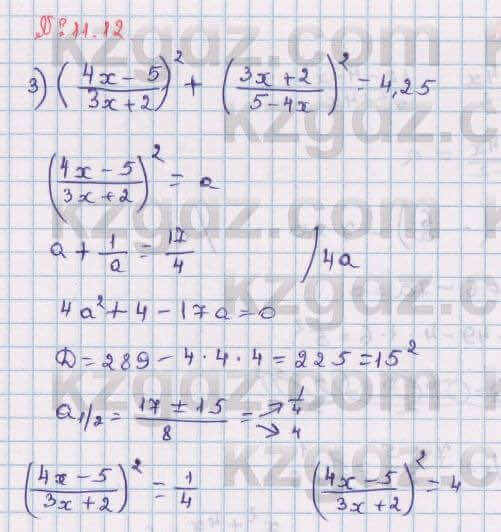 № 11.12
3) ((4x - 5)/(3x + 2))² + ((3x + 2)/(5 - 4x))² = 4,25
((4x - 5)/(3x + 2))² = a
a + 1/a = 17/4 / 4a
4a² + 4 - 17a = 0
D = 289 - 4·4·4 = 225 = 15²
a₁/₂ = (17 ± 15)/8 = → 1/4 → 4
((4x - 5)/(3x + 2))² = 1/4 ((4x - 5)/(3x + 2))² = 4
kzgdz.com